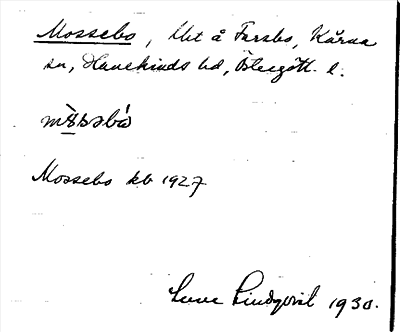 Mossebo, lht å Farsbo, Kärna
sn, Hanekinds hd, Östergötl. l.
mòssəbó
Mossebo kb 1927
Sune Lindqvist 1930.